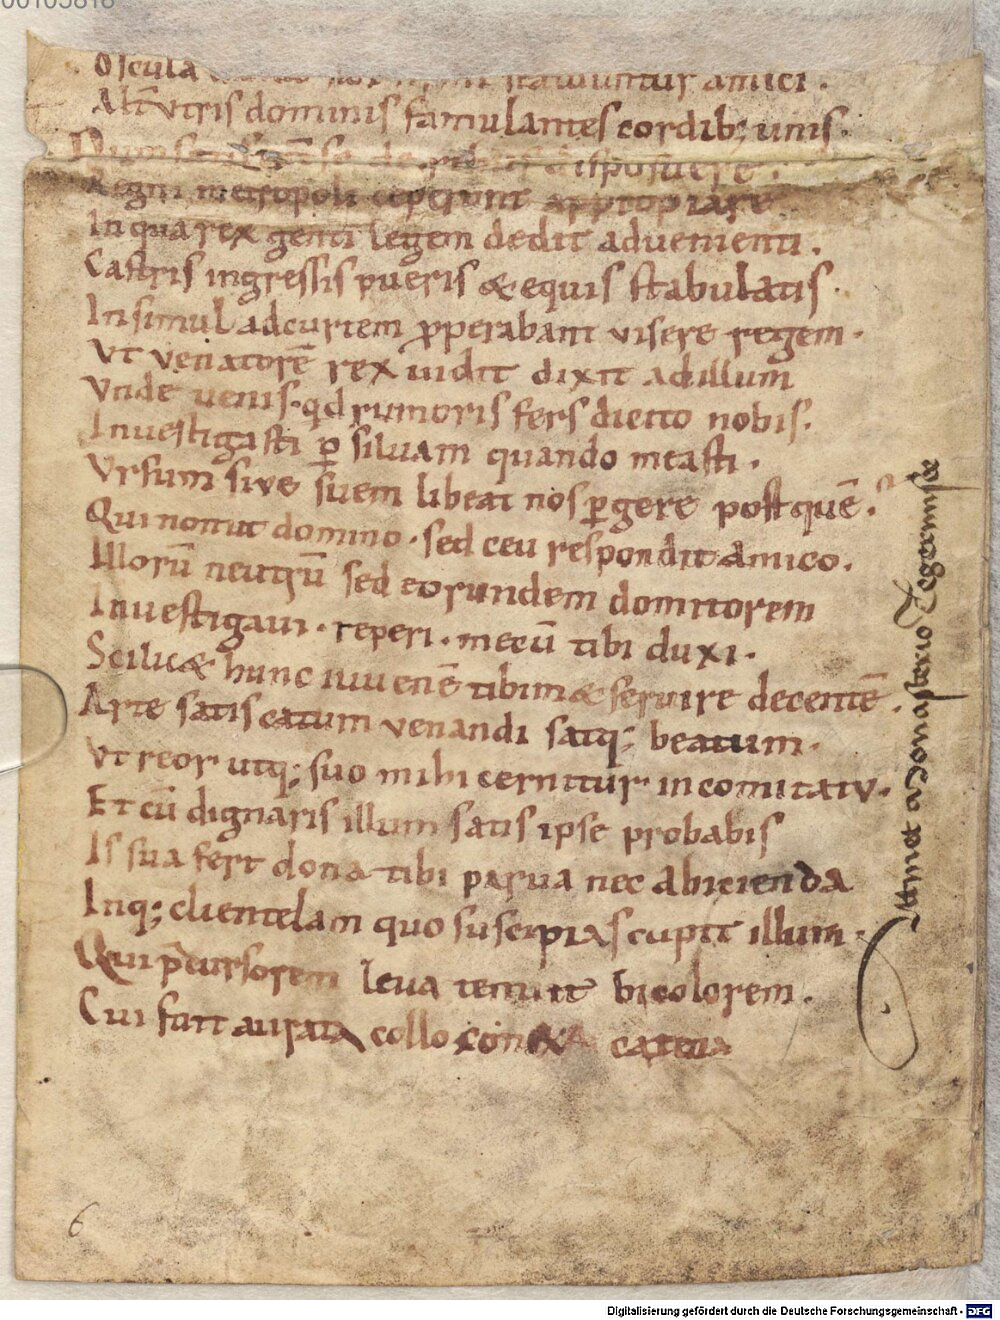 00103818
Oscula dando statuuntur amici .
Alt̄utris dominis famulantes cordib; unis .
Dum disposuere .
Regni metropoli ceperunt appropiare
In qua rex genti legem dedit aduenienti .
Castris ingressis pueris & equis stabulatis .
Insimul ad curtem ꝓperabant visere regem .
Vt venatorē rex uidit dixit ad illum
Vnde uenis . qd rumoris fers dicito nobis .
Inuestigasti ꝑ siluam quando measti .
Vrsum sive suem libeat nos ꝑgere post quē .
Qui non ut domino . sed ceu respondit amico .
Illorū neutrū sed eorundem domitorem
Inuestigaui . reperi . mecū tibi duxi .
Scilic& hunc iuuenē tibim& seruire decentē .
Arte satis catum venandi satq; beatum .
Vt reor utq; suo mihi cernitur in comitatu .
Et cū dignaris illum satis ipse probabis
Is sua fert dona tibi parua nec abicienda
Inq; clientelam quo suscipias cupit illum .
Qui p̄cursorem leua tenuit bicolorem .
Cui fuit aurata collo conexa catena
Attinet Monasterio Tegernnsee
6
Digitalisierung gefördert durch die Deutsche Forschungsgemeinschaft - DFG